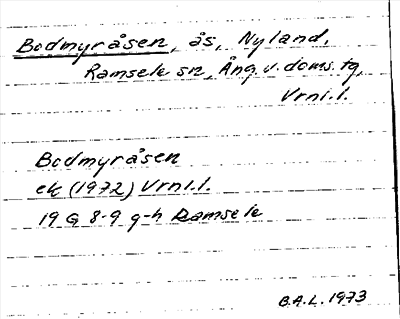 Bodmyråsen, ås, Nyland,
Ramsele sn, Ång. v. doms. tg,
Vrnl.l.
Bodmyråsen
ek (1972) Vrnl.l.
19 G 8-9 g-h Ramsele
B.A.L. 1973